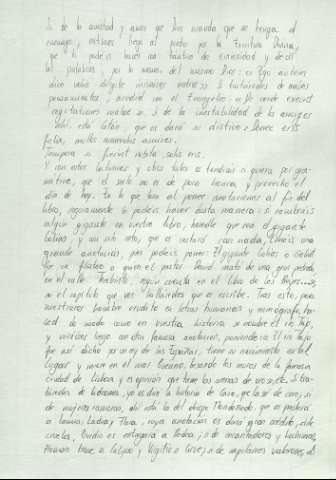 Si de la amistad y amor que Dios manda que se tenga al
enemigo, entraros luego al punto por la Escritura Divina,
que lo podeis hacer con tantico de curiosidad y decir
las palabras, por lo menos, del mismo Dios: Ego autem
dico vobis: diligite inimicos vestros. Si tratáredes de malos
pensamientos, acudid con el Evangelio: De corde exeunt
cogitationes malae. Si de la instabilidad de los amigos
está Catón, que os dará su dístico: Donec eris
felix, multos numerabis amicos.
Tempora si fuerint nubila, solus eris.
Y con estos latinicos y otros tales os tendrán si quiera por gra-
mático, que el serlo no es de poca honra y provecho el
día de hoy. En lo que toca al poner anotaciones al fin del
libro, seguramente lo podeis hacer desta manera: si nombráis
algún gigante en vuestro libro, hacedle que sea el gigante
Golías, y con solo esto, que os costará casi nada, tenéis una
grande anotación, pues podeis poner: El gigante Golías o Goliat
fue un filisteo a quien el pastor David mató de una gran pedrada
en el valle Terebinto, según cuenta en el libro de los Reyes...,
en el capítulo que vos halláredes que se escribe. Tras esto, para
mostraros hombre erudito en letras humanas y cosmógrafo, ha-
ced de modo como en vuestra historia se nombre el río Tajo,
y vereisos luego con otra famosa anotación, poniendo: El río Tajo
fue así dicho por un rey de las Españas; tiene su nacimiento en tal
lugar y muere en el mar Océano, besando los muros de la famosa
ciudad de Lisboa, y es opinión que tiene las arenas de oro, etc. Si tra-
táredes de ladrones, yo os diré la historia de Caco, que la sé de coro; si
de mujeres rameras, ahí está el obispo Mondoñedo, que os prestará
a Lamia, Laida y Flora, cuya anotación os dará gran crédito; si de
crueles, Ovidio os entregará a Medea; si de encantadores y hechiceras,
Homero tiene a Calipso y Virgilio a Circe; si de capitanes valerosos, el